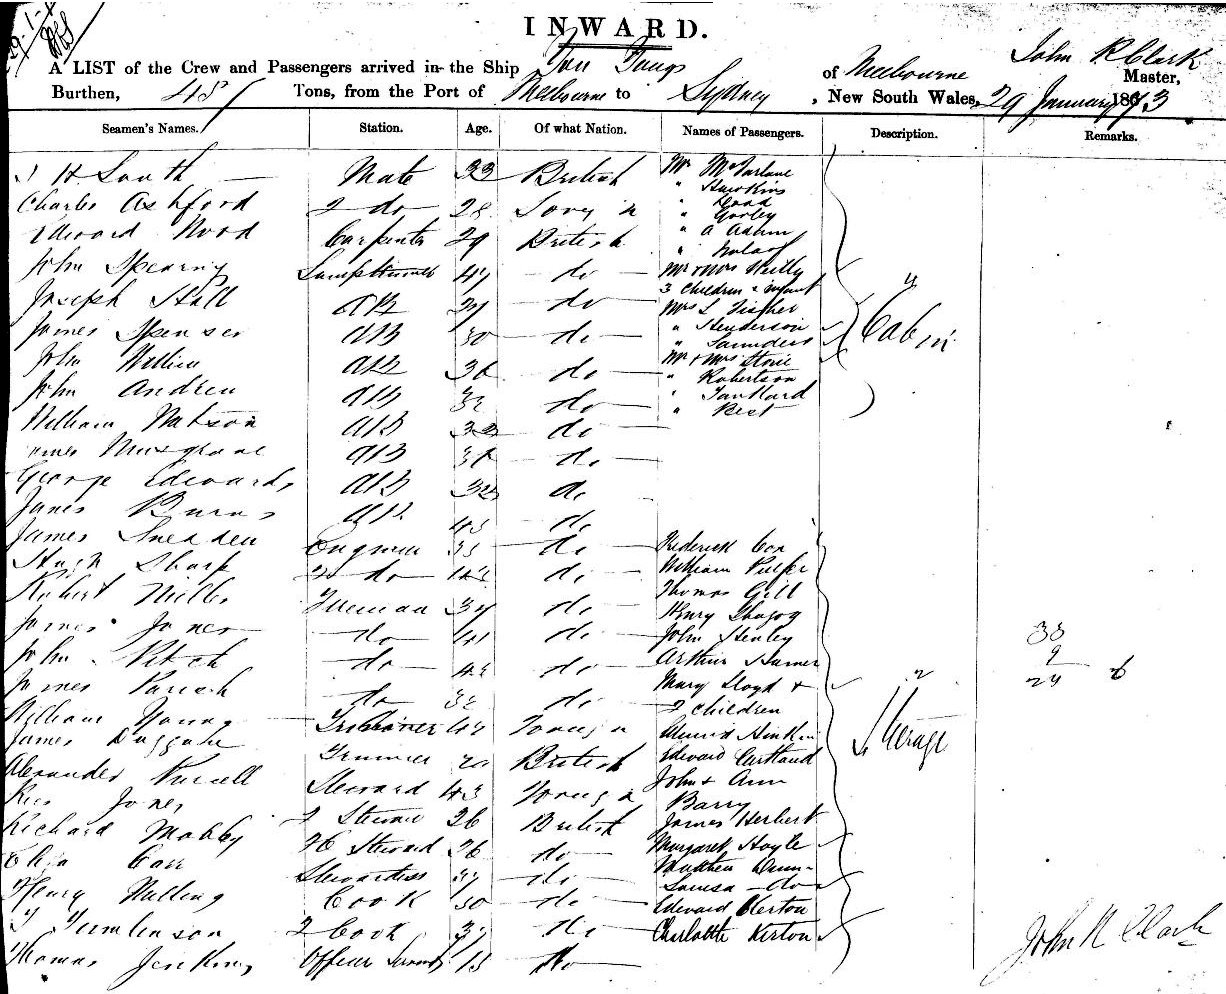 29-1-
INWARD.
A LIST of the Crew and Passengers arrived in the Ship You Yangs of Melbourne John R Clark Master,
Burthen, 457 Tons, from the Port of Melbourne to Sydney, New South Wales, 29 January 1873
Seamen's Names. Station. Age. Of what Nation. Names of Passengers. Description. Remarks.
J H South Mate 33 British
Charles Ashford 2 do 28 Foreign
Edward Wood Carpenter 29 British
John Spearing Lamptrimmer 47 do
Joseph Hall AB 27 do
James Spenser AB 30 do
John William AB 36 do
John Andrew AB do
William Watson AB 32 do
James Musgrave AB do
George Edwards AB do
James Burns AB 45 do
James Snedden Engineer 35 do
Hugh Sharp 2 do do
Robert Mills Fireman 37 do
James Jones do 41 do
John Pitch do do
James Parish do do
William Young Trimmer Foreign
James Duggate Trimmer British
Alexander Russell Steward 43 Foreign
Rees Jones 2 Steward 26 British
Richard Mobby Steward 26 do
Eliza Carr Stewardess 37 do
Henry Milling Cook 50 do
Tumlinson 2 Cook 37 do
Thomas Jenkins Officer Servant 15 do
Mr McFarlane
" Hawkins
" Hood
" Gorley
"
"
Mr & Mrs Reilly
3 Children & infant
Mrs L Fisher
" Henderson
" Saunders
Mr & Mrs Storie
" Robertson
" Tankard
" Best
Cabin
Frederick Cox
William Pulfer
Thomas Gill
Henry
John Henley
Arthur Turner
Mary Lloyd &
2 children
Edward Curtland
John & Ann
Barry
James Herbert
Margaret Hoyle
Matthew Dunn
Louisa do
Edward Kerton
Charlotte Kerton
Steerage
33
9
24
John R Clark